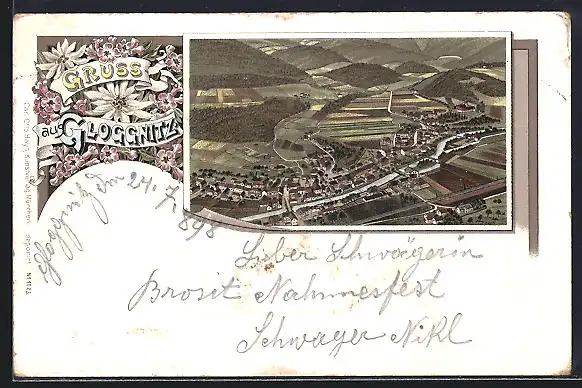 GRUSS
aus GLOGGNITZ
Gloggnitz den 24. 7. 898
Lieber Schwägerin
Brosit Nahmnesfest
Schwager Nikl